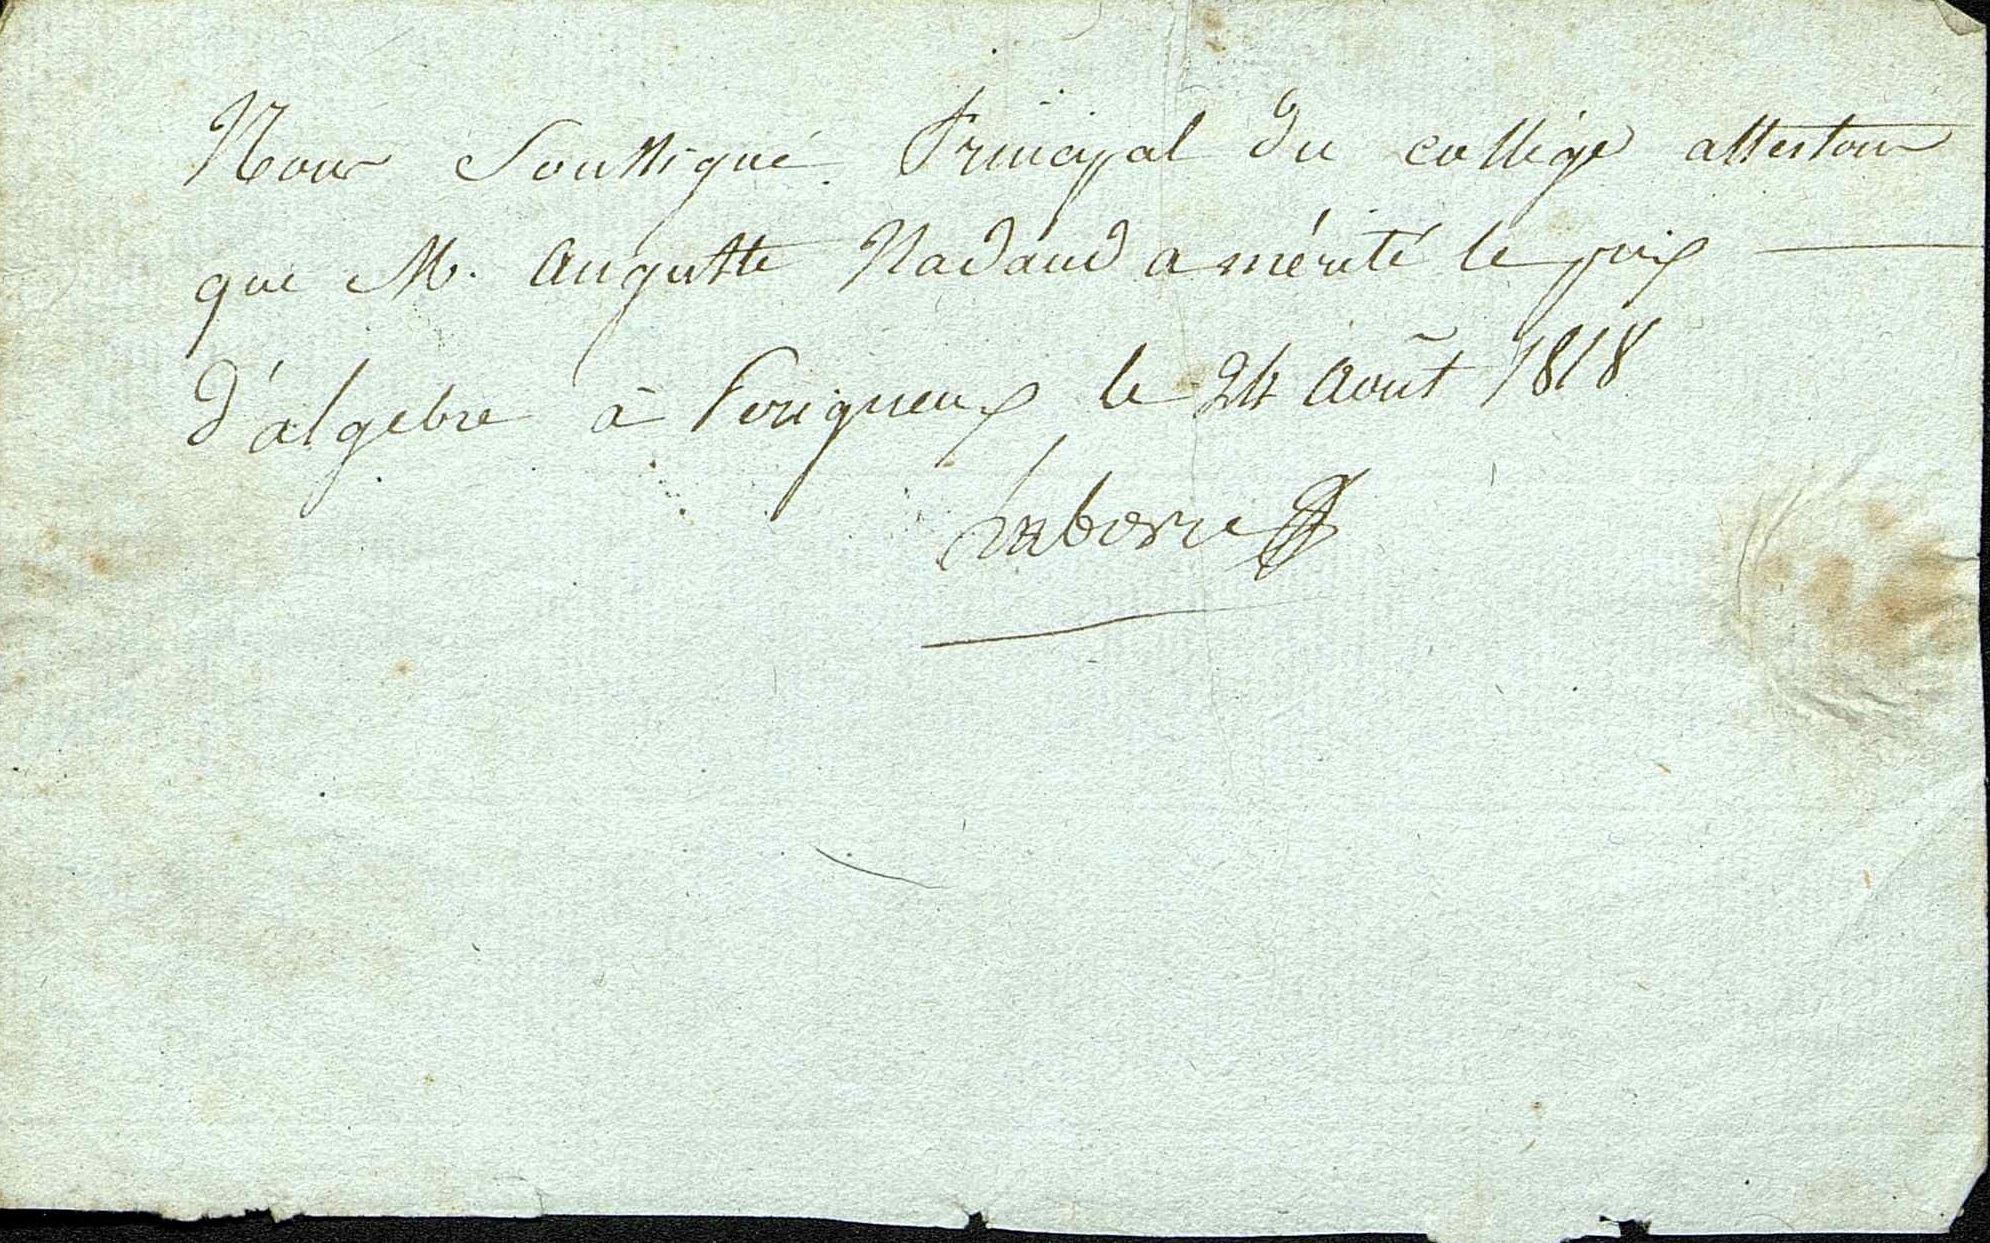 Nous Soussigné Principal du collége attestons
que M. Auguste Nadaud a mérité le prix
d'algebre à Perigueux le 24 Août 1818
Laborie